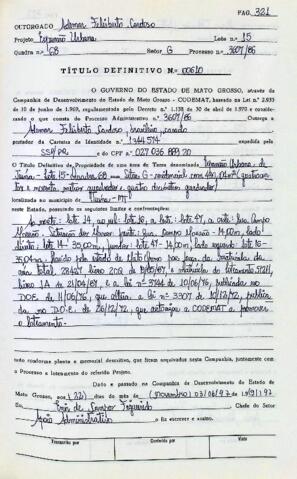 PAG. 321
OUTORGADO Ademar Feliberto Cardoso
Projeto Expansão Urbana Lote n.º 15
Quadra n.º 68 Setor G Processo n.º 3607/86
TÍTULO DEFINITIVO N.º 00610
O GOVERNO DO ESTADO DE MATO GROSSO, através da
Companhia de Desenvolvimento do Estado de Mato Grosso - CODEMAT, baseado na Lei n.º 2.933
de 10 de junho de 1969, regulamentada pelo Decreto n.º 1.138 de 30 de abril de 1970 e considerando
o que consta do Processo Administrativo n.º 3607/86 Outorga a
Ademar Feliberto Cardoso, brasileiro, casado
portador da Carteira de Identidade n.º 1344574 expedida pela
SSP/PR e do CPF n.º 027 036 889 20
O Título Definitivo de Propriedade de uma área de Terra denominada Expansão Urbana de
Juína - Lote 15 - Quadra 68 - Setor G - residencial com 490,00m² (quatrocen
tos e noventa metros quadrados e quatro decímetros quadrados)
localizada no município de Juína - MT
neste Estado, possuindo os seguintes limites e confrontações:
ao norte: lote 14, ao sul: lote 16, a lote: 47, a oeste: Rua Campo
Mourão. lado
direito: lote 14 - 35,00m, fundos: lote 47 - 14,00m, lado esquerdo lote 16 -
35,00m havida pelo Estado de Mato Grosso por força da matrícula da
área total, 28427 livro 2CR de e matrícula do loteamento
livro 1A de 21/04/87 e a lei nº 3744 de 10/06/76, publicada no
D.O.E. de 11/06/76, que altera a lei nº 3307 de 18/12/72, publica
da no D.O.E. de 26/12/72, que autoriza a CODEMAT a promover
o loteamento.
tudo conforme planta e memorial descritivo, que ficam arquivados nesta Companhia, juntamente com
o Processo a loteamento do referido Projeto.
Dado e passado na Companhia de Desenvolvimento do Estado de
Mato Grosso, aos (22) dias do mês de (novembro) 03/06/97
Eu, Chefe do Setor
Apoio Administrativo o fiz escrever e assino.
Transcrito por
Conferido por
Visto